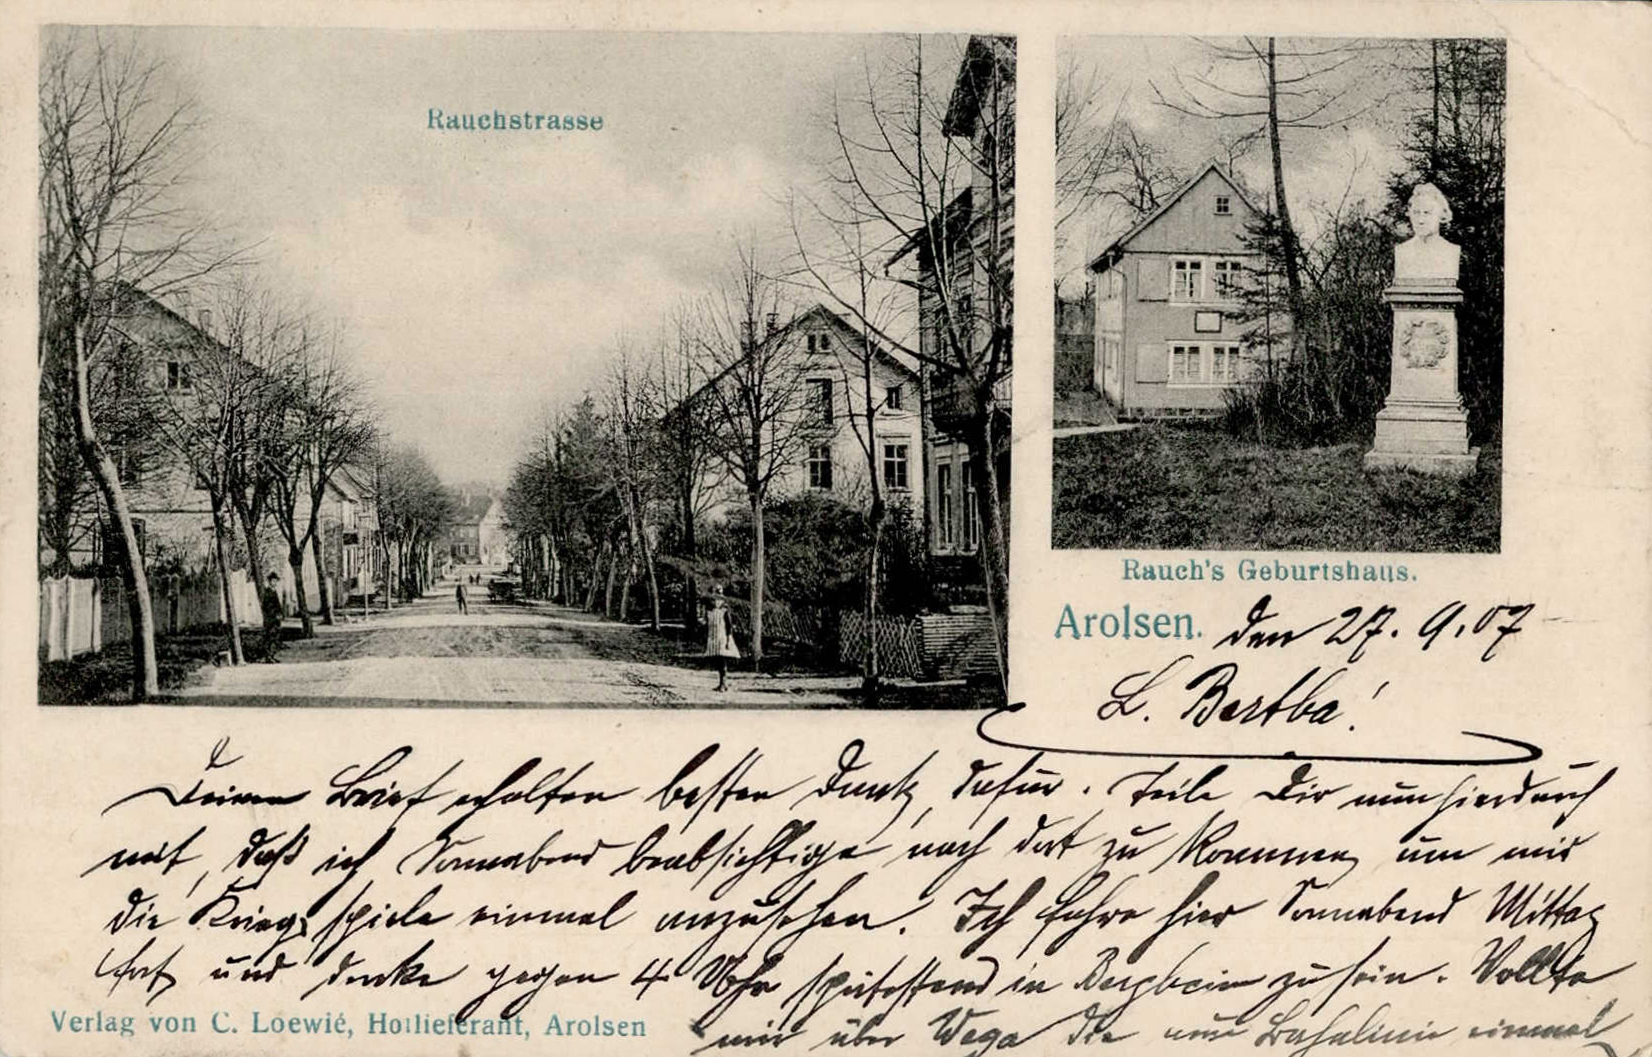 Rauchstrasse
Rauch's Geburtshaus.
Arolsen. den 27. 9. 07
L. Bertha!
Deinen Brief erhalten besten Dank, dafür. Teile Dir nun hierdurch
mit, daß ich Sonnabend beabsichtige nach dort zu kommen um mir
die Kriegsspiele einmal anzusehen. Ich fahre hier Sonnabend Mittag
fort und denke gegen 4 Uhr spätestens in Bergheim zu sein. Wollte
mir über Wega die neue Bahnlinie einmal
Verlag von C. Loewié, Hoflieferant, Arolsen